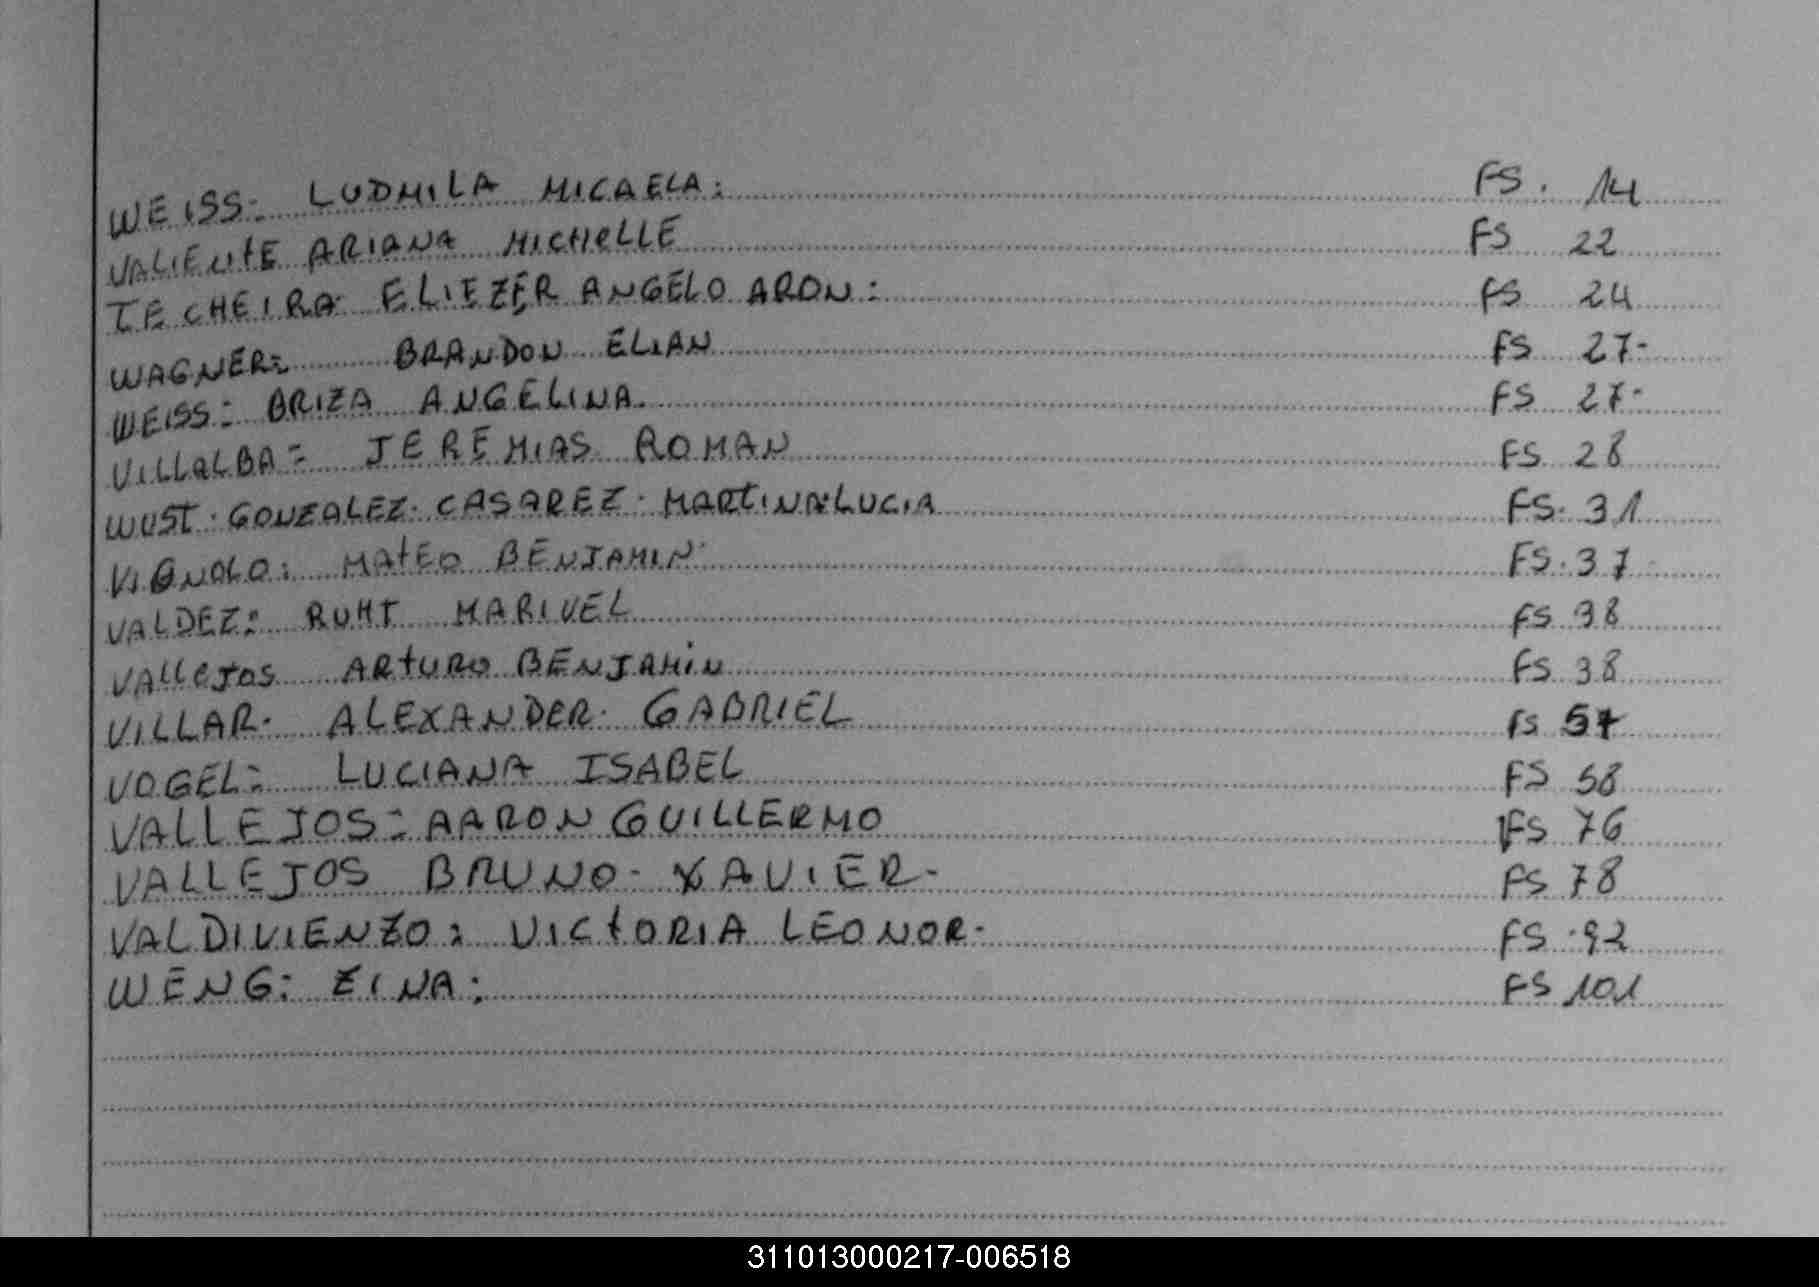 WEISS: LUDMILA MICAELA: FS. 14
VALIENtE ARIANA MICHELLE FS 22
TECHEIRA: ELIEZER ANGELO ARON: FS 24
WAGNER: BRANDON ELIAN FS 27-
WEISS: BRIZA ANGELINA. FS 27-
VILLALBA= JEREMIAS ROMAN FS 28
WUST. GONZALEZ. CASAREZ. MARTINA LUCIA FS. 31
VIGNOLO: MAtEO BENJAMIN. FS. 37
VALDEZ: RUHT MARIVEL FS 38
VALLEJOS ARtURO BENJAMIN FS 38
VILLAR. ALEXANDER. GABRIEL FS 57
VOGEL: LUCIANA ISABEL FS 58
VALLEJOS: AARON GUILLERMO FS 76
VALLEJOS BRUNO. XAVIER. FS 78
VALDIVIENZO: VICtORIA LEONOR. FS .92
WENG: ZINA: FS 101
311013000217-006518